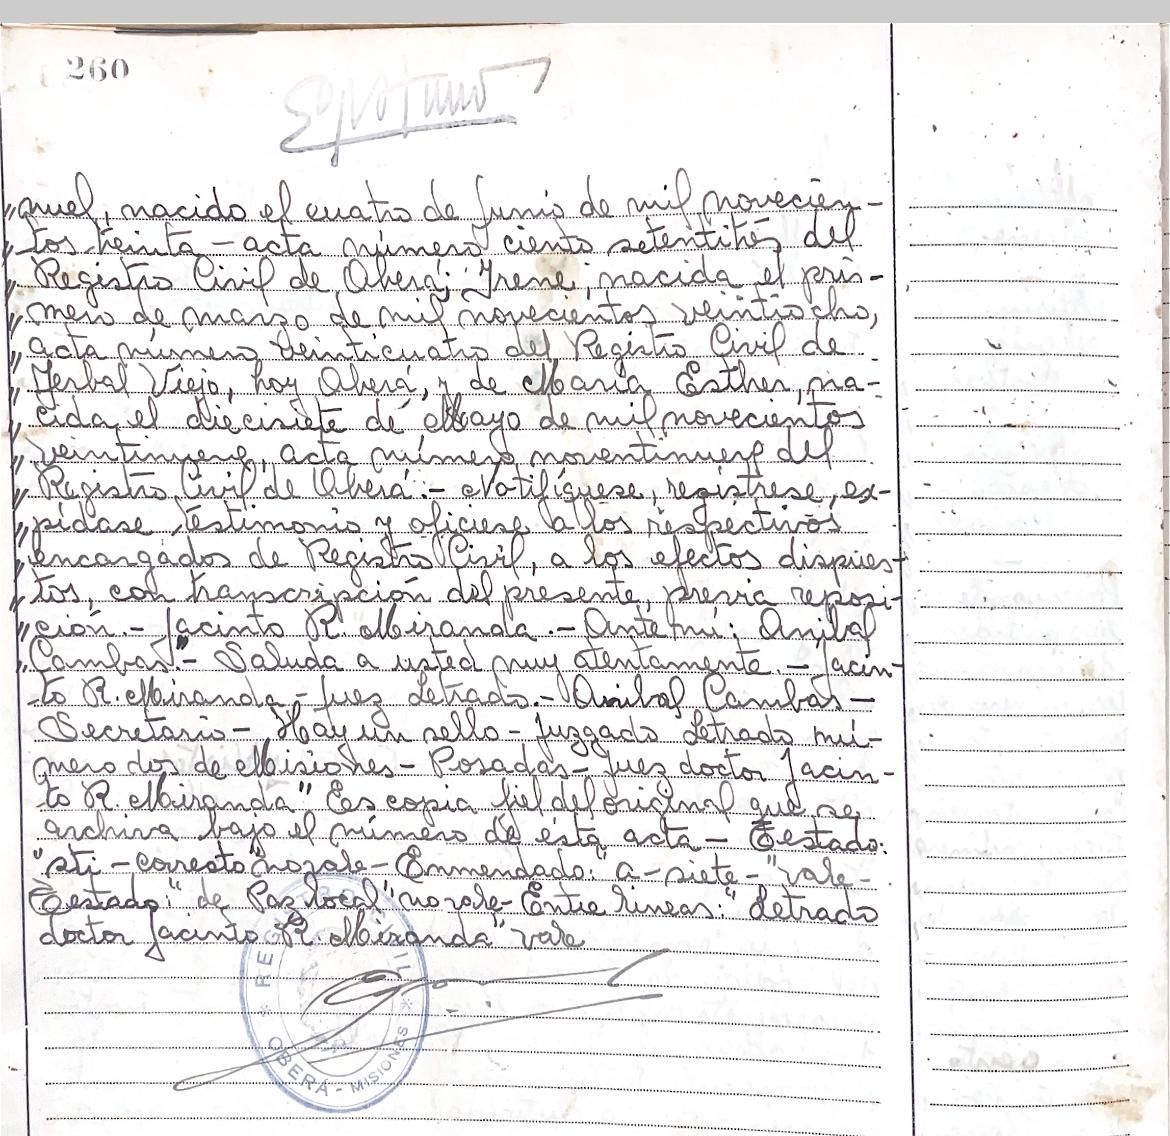 260
"nuel, nacido el cuatro de Junio de mil novecien-
"tos treinta - acta número ciento setentitrés del
"Registro Civil de Oberá; Irene, nacida el pri-
"mero de marzo de mil novecientos veintiocho,
"acta número veinticuatro del Registro Civil de
"Yerbal Viejo, hoy Oberá, y de María Esther, na-
"cida el diecisiete de Mayo de mil novecientos
"veintinueve, acta número noventinueve del
"Registro Civil de Oberá.- Notifíquese, regístrese, ex-
"pídase testimonio y ofíciese a los respectivos
"encargados de Registro Civil, a los efectos dispues-
"tos, con transcripción del presente, previa reposi-
"ción.- Jacinto R. Miranda.- Ante mí: Anibal
"Cambas".- Saluda a usted muy atentamente.- Jacin-
to R. Miranda - Juez Letrado.- Anibal Cambas -
Secretario - Hay un sello - Juzgado Letrado nú-
mero dos de Misiones - Posadas - Juez doctor Jacin-
to R. Miranda" Es copia fiel del original que se
archiva bajo el número de ésta acta - Testado:
"sti - correcto" no vale - Enmendado: "a - siete - "vale -
Testado: "de Paz local" no vale - Entre líneas: "Letrado
doctor Jacinto R. Miranda" vale
REGISTRO CIVIL
OBERÁ - MISIONES